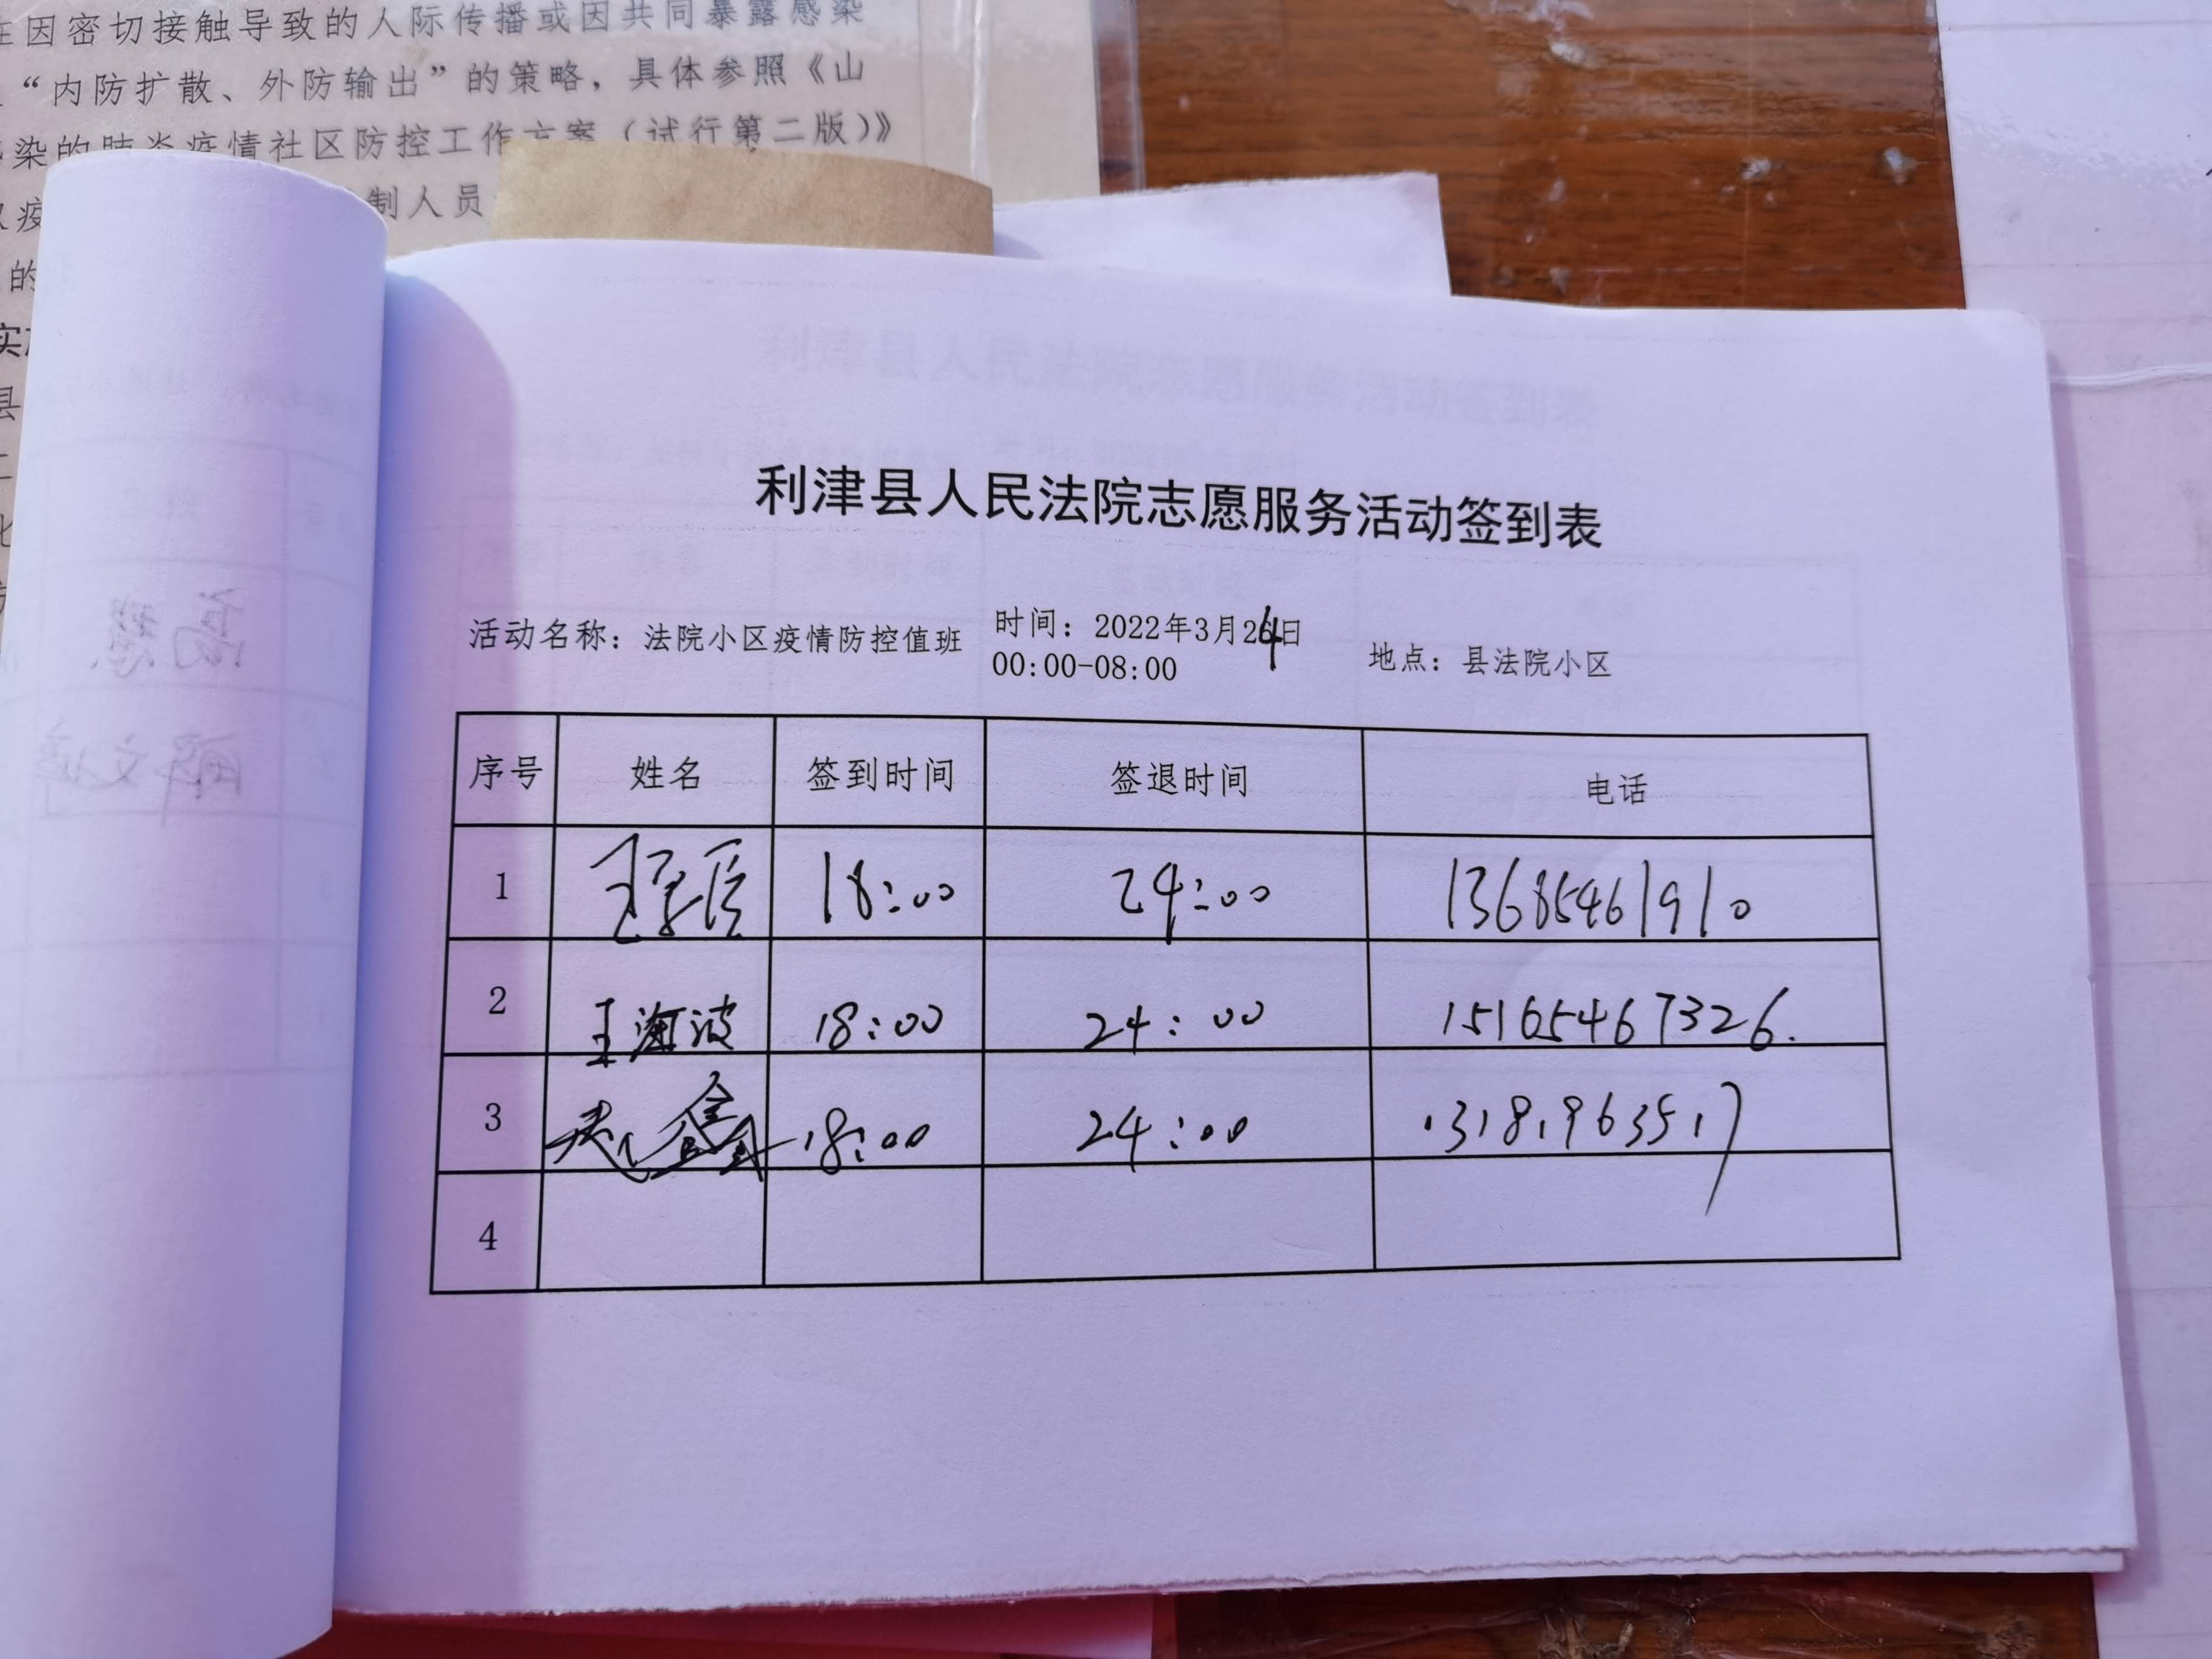 在因密切接触导致的人际传播或因共同暴露感染
“内防扩散、外防输出”的策略，具体参照《山
染的肺炎疫情社区防控工作方案（试行第二版）》
制人员
的
县
利津县人民法院志愿服务活动签到表
活动名称：法院小区疫情防控值班
时间：2022年3月24日
00:00-08:00
地点：县法院小区
序号 姓名 签到时间 签退时间 电话
1 18:00 24:00 13685461910
2 王海波 18:00 24:00 15165467326.
3 18:00 24:00 13181963517
4